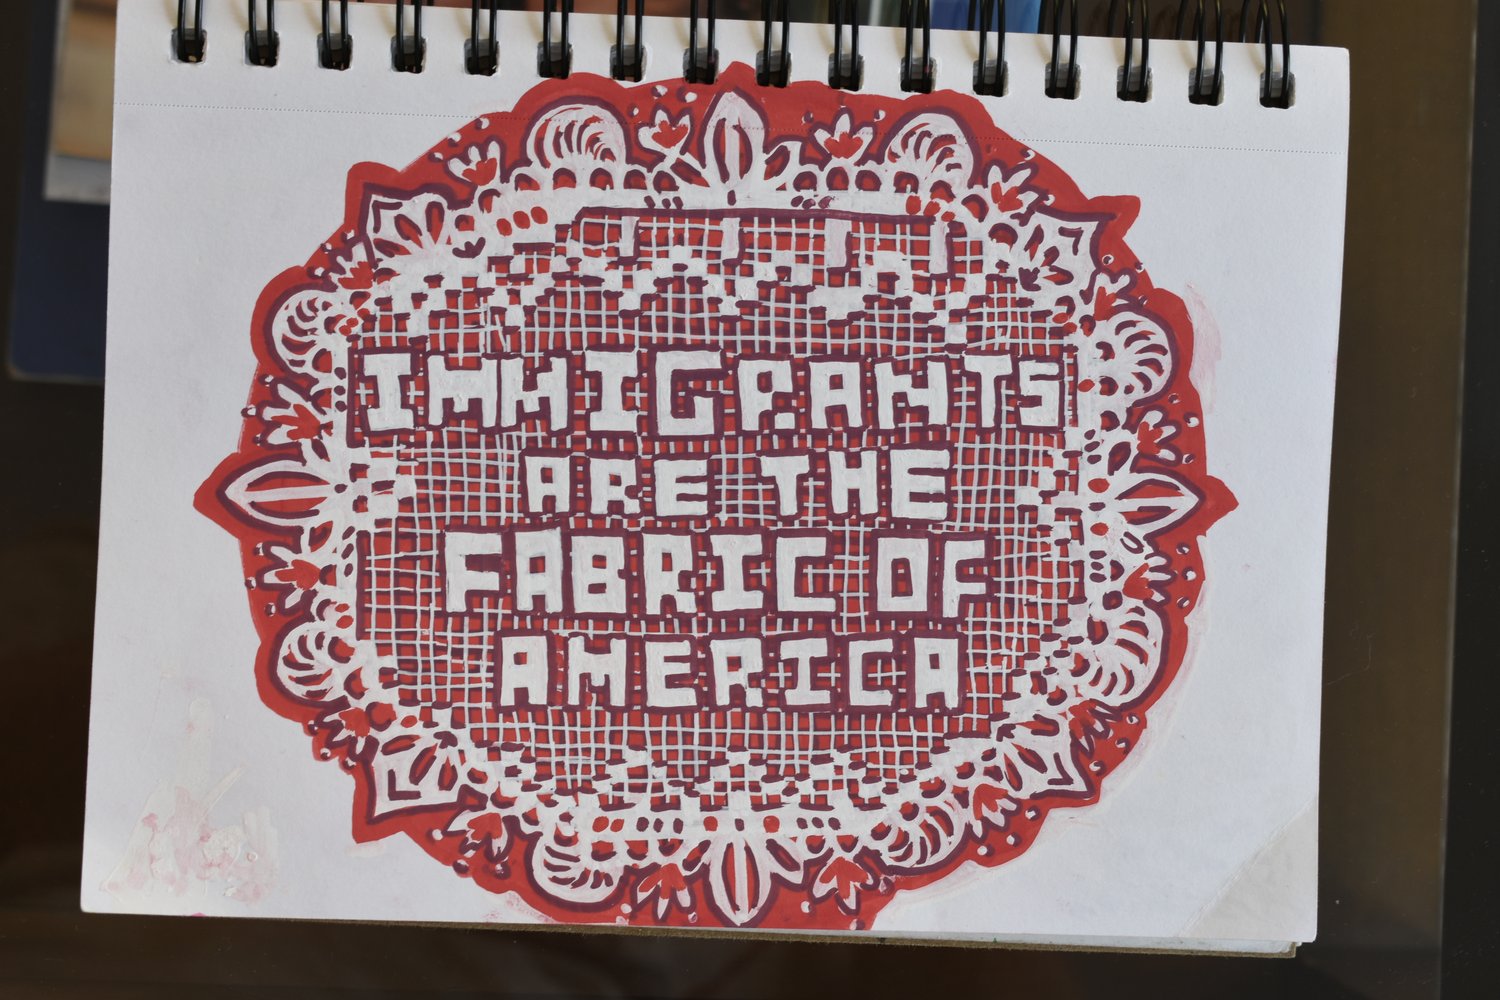 IMMIGRANTS
ARE THE
FABRIC OF
AMERICA